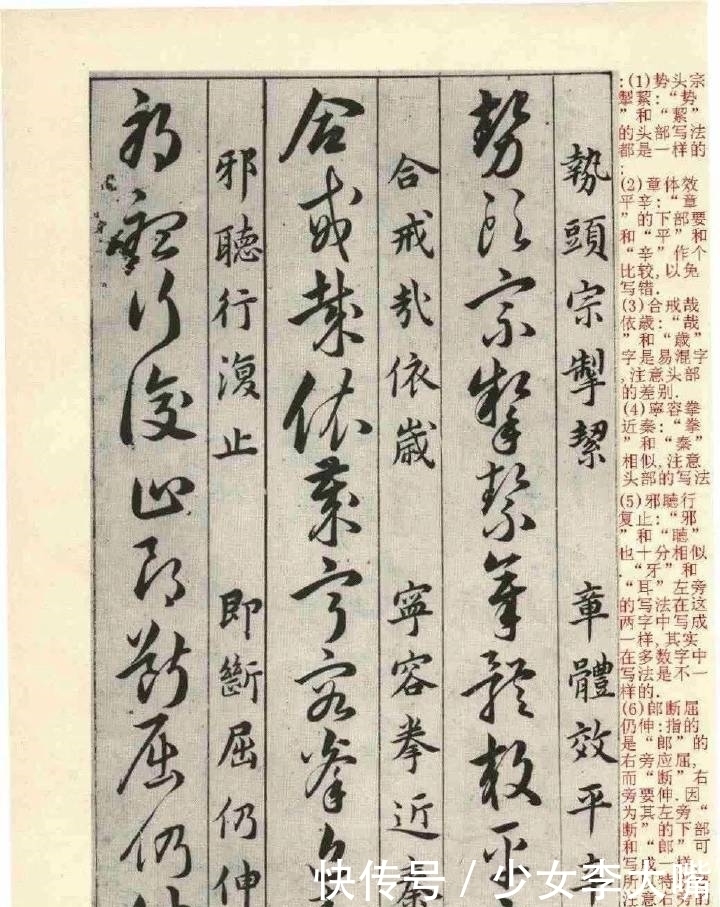 執頭宗掣絜　章體效平
勢頭宗掣絜章體效平
合戒哉依歲　寧容拳近秦
合戒哉依歲寧容拳
邪聽行復止　即斷屈仍伸
邪聽行復止即斷屈仍
:(1)势头宗
掣絜:“势
”和“絜”
的头部写法
都是一样的
;
(2)章体效
平辛:“章
”的下部要
和“平”和
“辛”作个
比较,以免
写错.
(3)合戒哉
依歲:“哉
”和“歲”
字是易混字
,注意头部
的差别.
(4)寧容拳
近秦:“拳
”和“秦”
相似,注意
头部的写法
(5)邪聽行
复止:“邪
”和“聽”
也十分相似
.“牙”和
“耳”左旁
的写法在这
两字中写成
一样,其实
在多数字中
写法是不一
样的.
(6)郎断屈
仍伸:指的
是“郎”的
右旁应屈,
而“断”右
旁要伸.因
为其左旁“
断”的下部
和“郎”可
写成一样,
所以特
注意右旁的
快传号 / 少女李大嘴